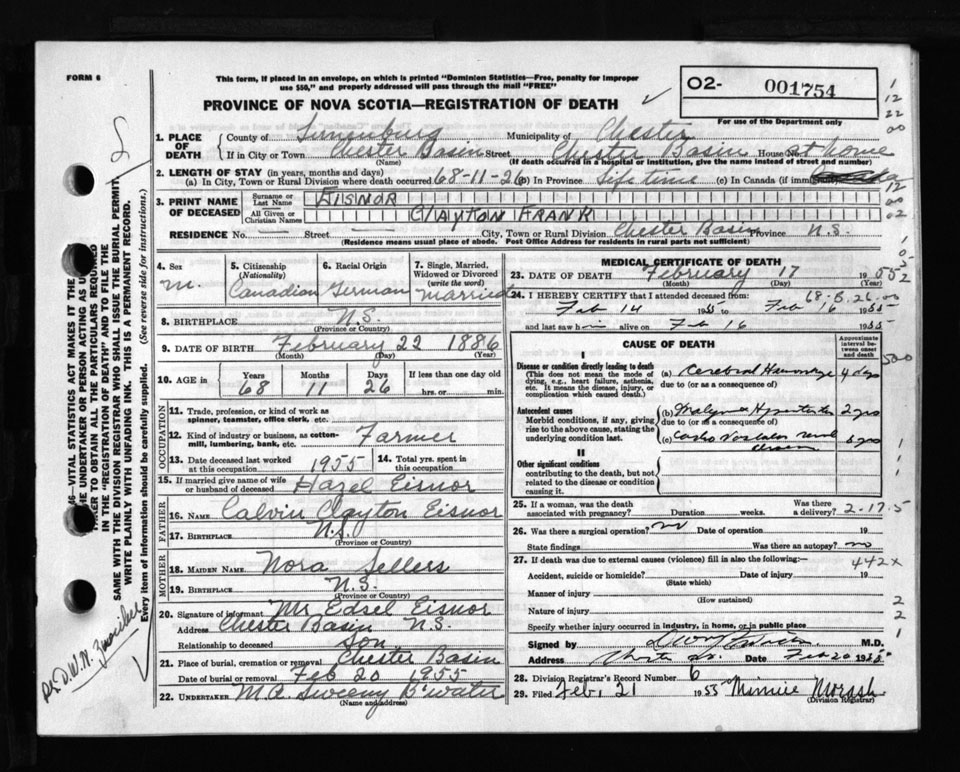 FORM 6
This form, if placed in an envelope, on which is printed "Dominion Statistics—Free, penalty for improper
use $50," and properly addressed will pass through the mail "FREE"
PROVINCE OF NOVA SCOTIA—REGISTRATION OF DEATH
O2- 001754
For use of the Department only
1. PLACE OF DEATH
County of Lunenburg Municipality of Chester
If in City or Town Chester Basin Street Chester Basin House No. at home
(Name) (If death occurred in a hospital or institution, give the name instead of street and number)
2. LENGTH OF STAY (in years, months and days)
(a) In City, Town or Rural Division where death occurred 68-11-26 (b) In Province Life time (c) In Canada (if immigrant)
3. PRINT NAME OF DECEASED
Surname or Last Name EISNOR
All Given or Christian Names CLAYTON FRANK
RESIDENCE No. — Street — City, Town or Rural Division Chester Basin Province N.S.
(Residence means usual place of abode. Post Office Address for residents in rural parts not sufficient)
4. Sex M.
5. Citizenship (Nationality) Canadian
6. Racial Origin German
7. Single, Married, Widowed or Divorced (write the word) Married
8. BIRTHPLACE N.S.
(Province or Country)
9. DATE OF BIRTH February 22 1886
(Month) (Day) (Year)
10. AGE in Years 68 Months 11 Days 26 If less than one day old
hrs. or min.
OCCUPATION
11. Trade, profession, or kind of work as spinner, teamster, office clerk, etc.
12. Kind of industry or business, as cotton-mill, lumbering, bank, etc. Farmer
13. Date deceased last worked at this occupation 1955 14. Total yrs. spent in this occupation
15. If married give name of wife or husband of deceased Hazel Eisnor
FATHER
16. NAME Calvin Clayton Eisnor
17. BIRTHPLACE N.S.
(Province or Country)
MOTHER
18. MAIDEN NAME Nora Sellers
19. BIRTHPLACE N.S.
(Province or Country)
20. Signature of informant Mr Edsel Eisnor
Address Chester Basin N.S.
Relationship to deceased Son
21. Place of burial, cremation or removal Chester Basin
Date of burial or removal Feb 20 1955
22. UNDERTAKER M.A. Sweeny B'water
(Name and address)
MEDICAL CERTIFICATE OF DEATH
23. DATE OF DEATH February 17 1955
(Month) (Day) (Year)
24. I HEREBY CERTIFY that I attended deceased from:
68-B.26.00
Feb 14 1955 to Feb 16 1955
and last saw him alive on Feb 16 1955
CAUSE OF DEATH
Approximate interval between onset and death
I
Disease or condition directly leading to death
(This does not mean the mode of dying, e.g., heart failure, asthenia, etc. It means the disease, injury, or complication which caused death.)
(a) Cerebral Hemorrhage 4 days
due to (or as a consequence of)
Antecedent causes
Morbid conditions, if any, giving rise to the above cause, stating the underlying condition last.
(b) Malignant Hypertension 2 yrs
due to (or as a consequence of)
(c) Cardio Vascular renal disease
II
Other significant conditions
contributing to the death, but not related to the disease or condition causing it.
25. If a woman, was the death associated with pregnancy? Duration weeks. Was there a delivery?
2-17-5
26. Was there a surgical operation? no Date of operation 19
State findings Was there an autopsy? no
27. If death was due to external causes (violence) fill in also the following:—
442x
Accident, suicide or homicide? Date of injury 19
(State which)
Manner of injury
(How sustained)
Nature of injury
Specify whether injury occurred in industry, in home, or in public place
Signed by M.D.
Address Date Feb 20 1955
28. Division Registrar's Record Number 6
29. Filed Feb, 21 1955 Minnie Morash
(Division Registrar)
SAME WITH THE DIVISION REGISTRAR WHO SHALL ISSUE THE BURIAL PERMIT
WRITE PLAINLY WITH UNFADING INK. THIS IS A PERMANENT RECORD.
Every item of information should be carefully supplied. (See reverse side for instructions.)